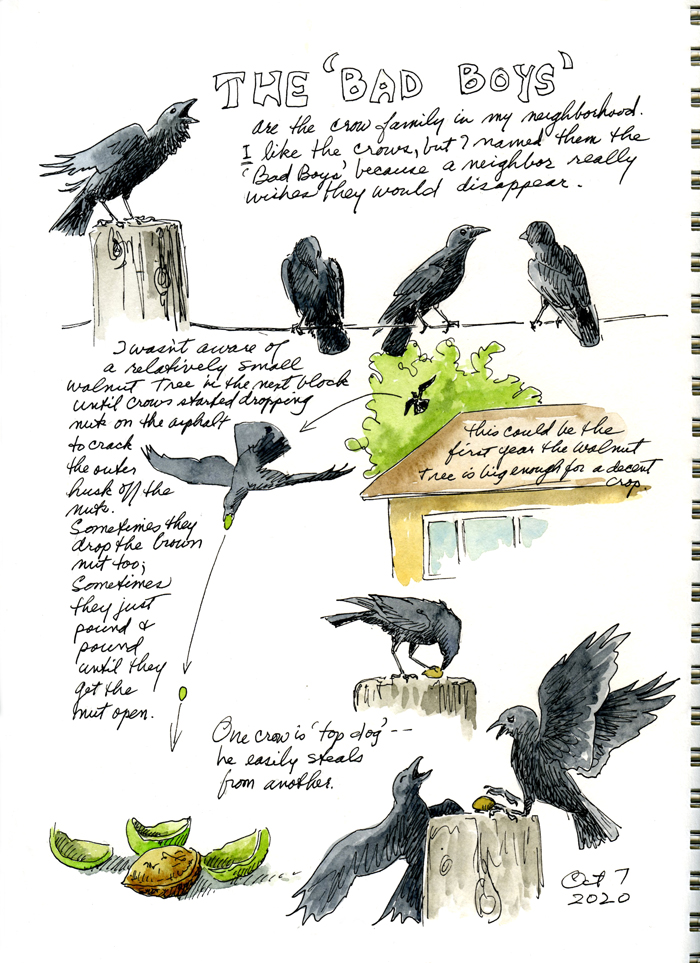 THE 'BAD BOYS'
are the crow family in my neighborhood.
I like the crows, but I named them the
'Bad Boys' because a neighbor really
wishes they would disappear.
I wasn't aware of
a relatively small
walnut tree in the next block
until crows started dropping
nuts on the asphalt
to crack
the outer
husk off the
nuts.
Sometimes they
drop the brown
nut too;
Sometimes
they just
pound &
pound
until they
get the
nut open.
this could be the
first year the walnut
tree is big enough for a decent
crop.
One crow is 'top dog' --
he easily steals
from another.
Oct 7
2020